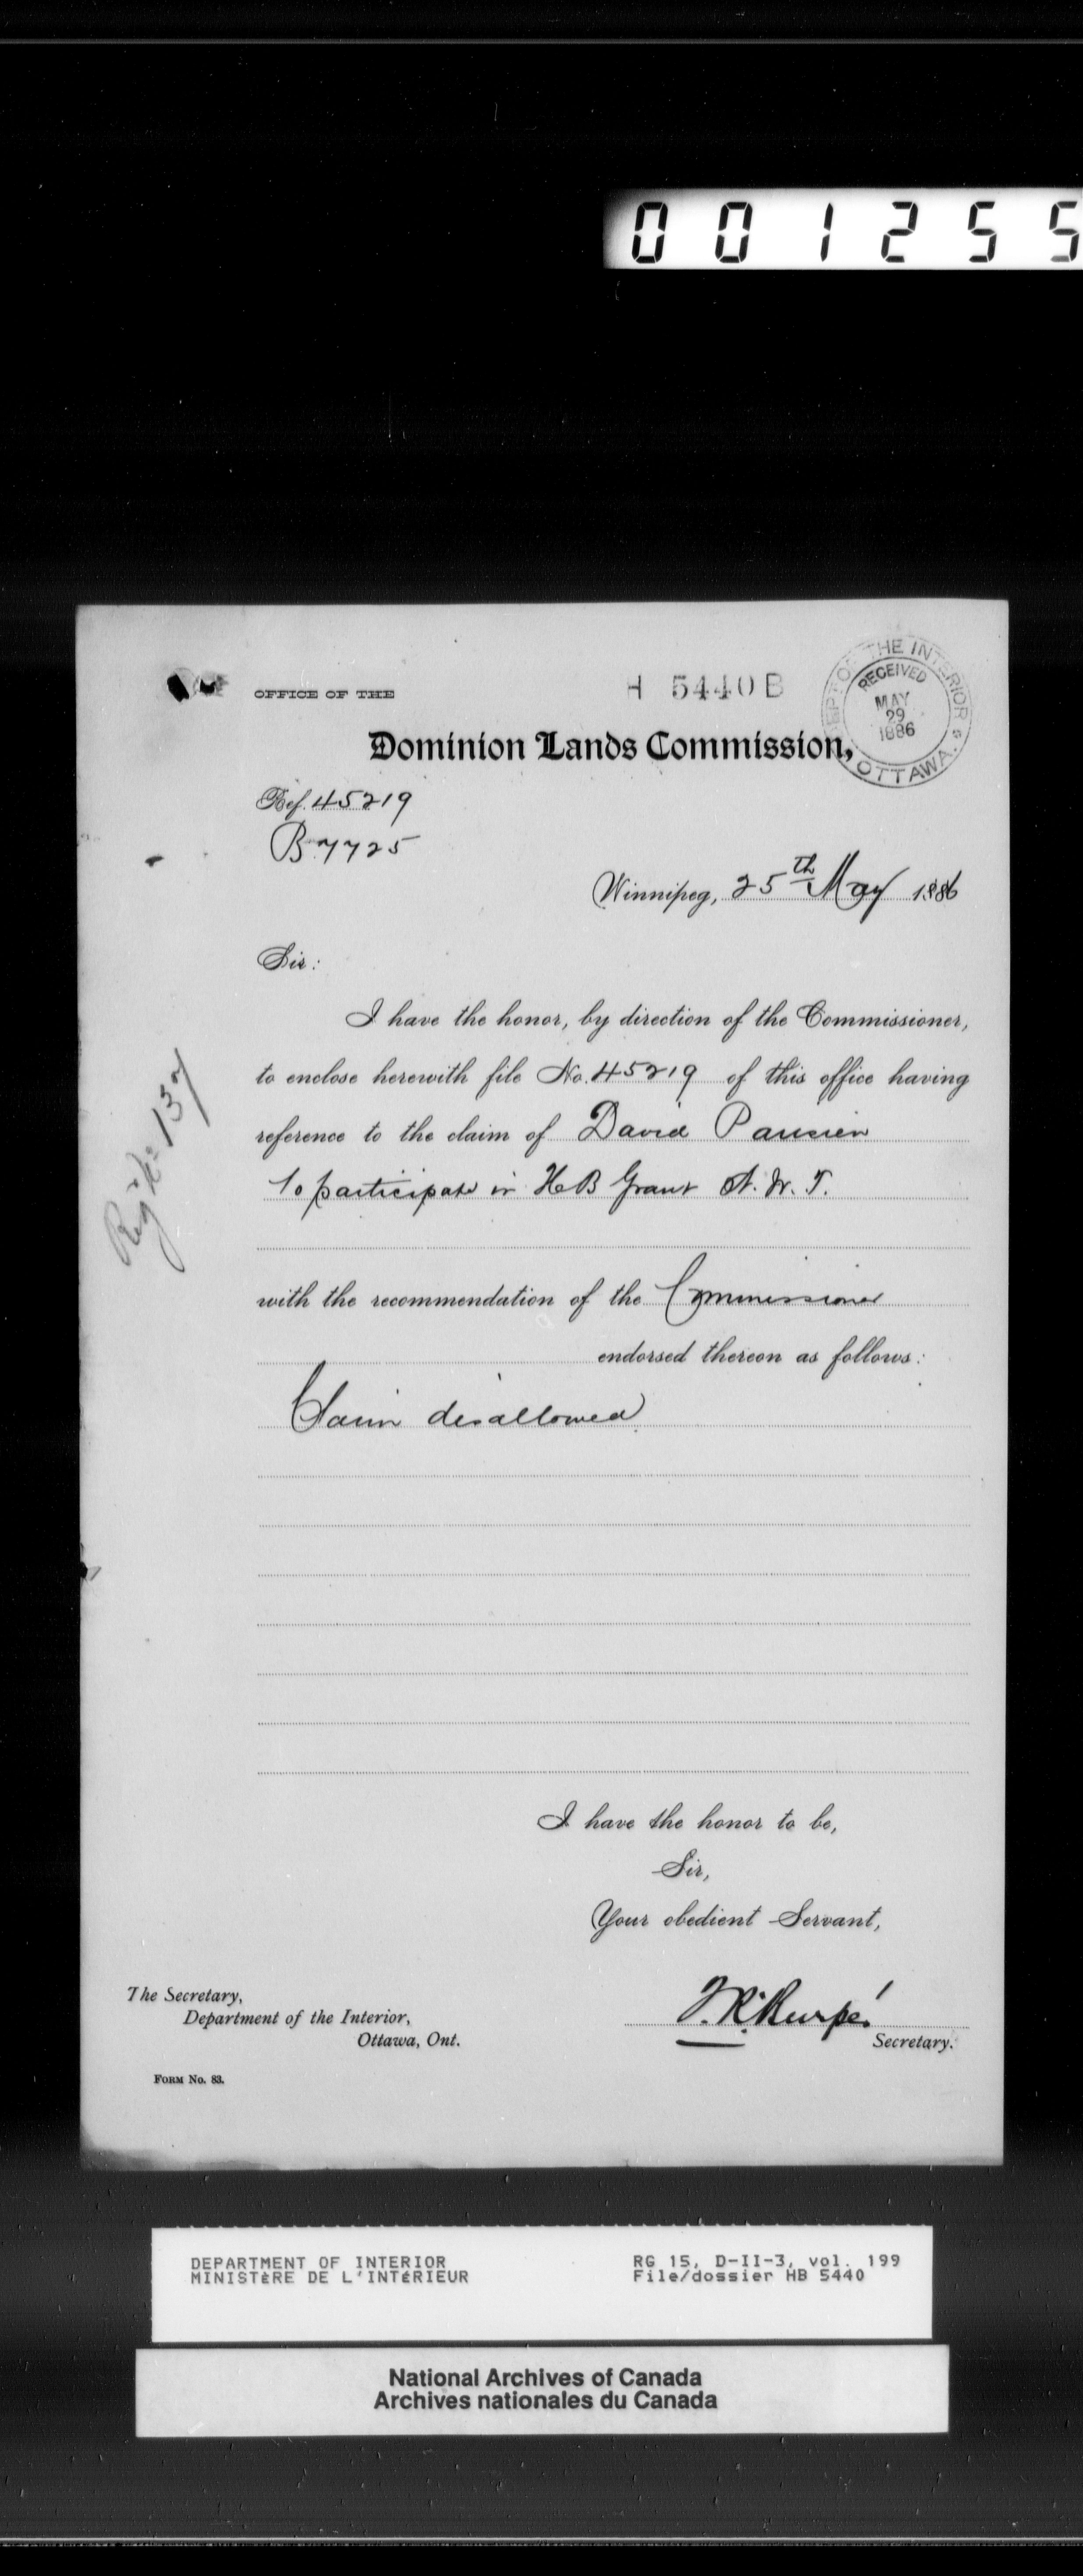 001255
OFFICE OF THE
H 5440 B
DEPT OF THE INTERIOR
RECEIVED
MAY
29
1886
OTTAWA.
Dominion Lands Commission,
Ref. 45219
B 7725
Winnipeg, 25th May 1886
Sir:
I have the honor, by direction of the Commissioner,
to enclose herewith file No. 45219 of this office having
reference to the claim of David
to participate in HB Grant N. W. T.
with the recommendation of the Commissioner
endorsed thereon as follows:
Claim disallowed
I have the honor to be,
Sir,
Your obedient Servant,
Secretary.
The Secretary,
Department of the Interior,
Ottawa, Ont.
FORM No. 83.
DEPARTMENT OF INTERIOR
MINISTÈRE DE L'INTÉRIEUR
RG 15, D-II-3, vol. 199
File/dossier HB 5440
National Archives of Canada
Archives nationales du Canada